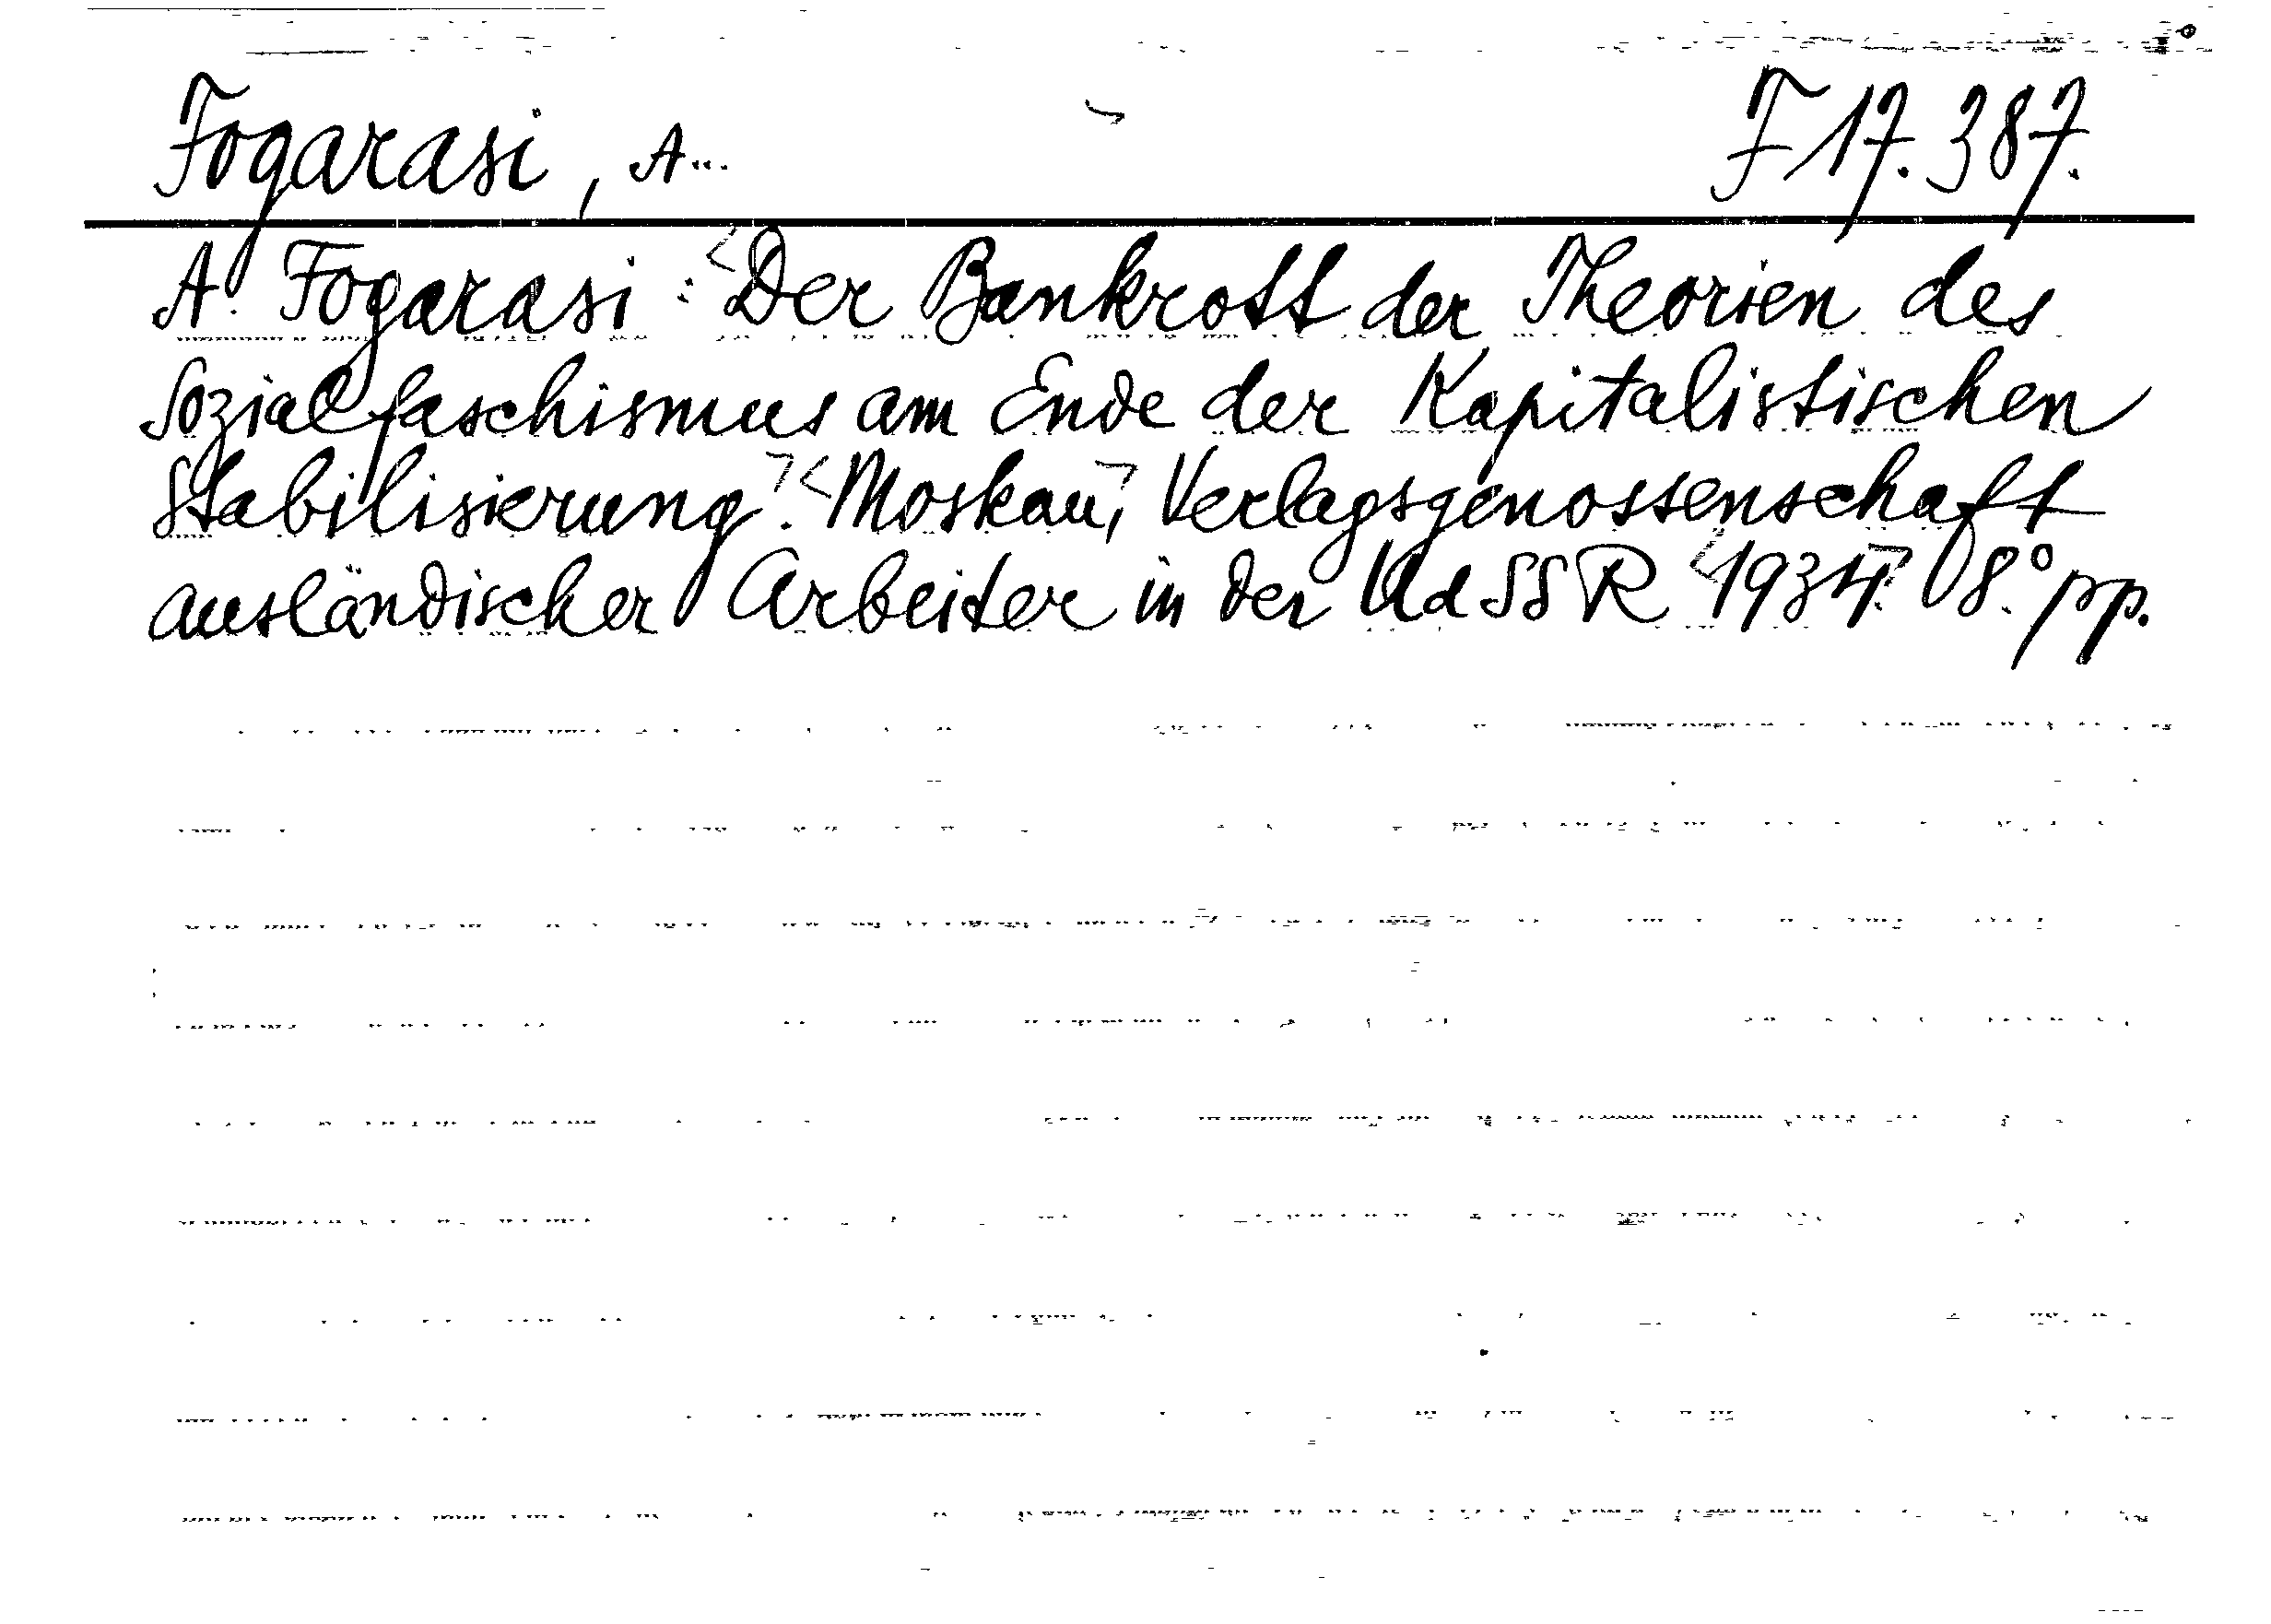 Fogarasi, A... F 17.387.
A. Fogarasi: <Der Bankrott der Theorien des
Sozialfaschismus am Ende der Kapitalistischen
Stabilisierung>. <Moskau>, Verlagsgenossenschaft
ausländischer Arbeiter in der UdSSR <1934>. 8.° pp.